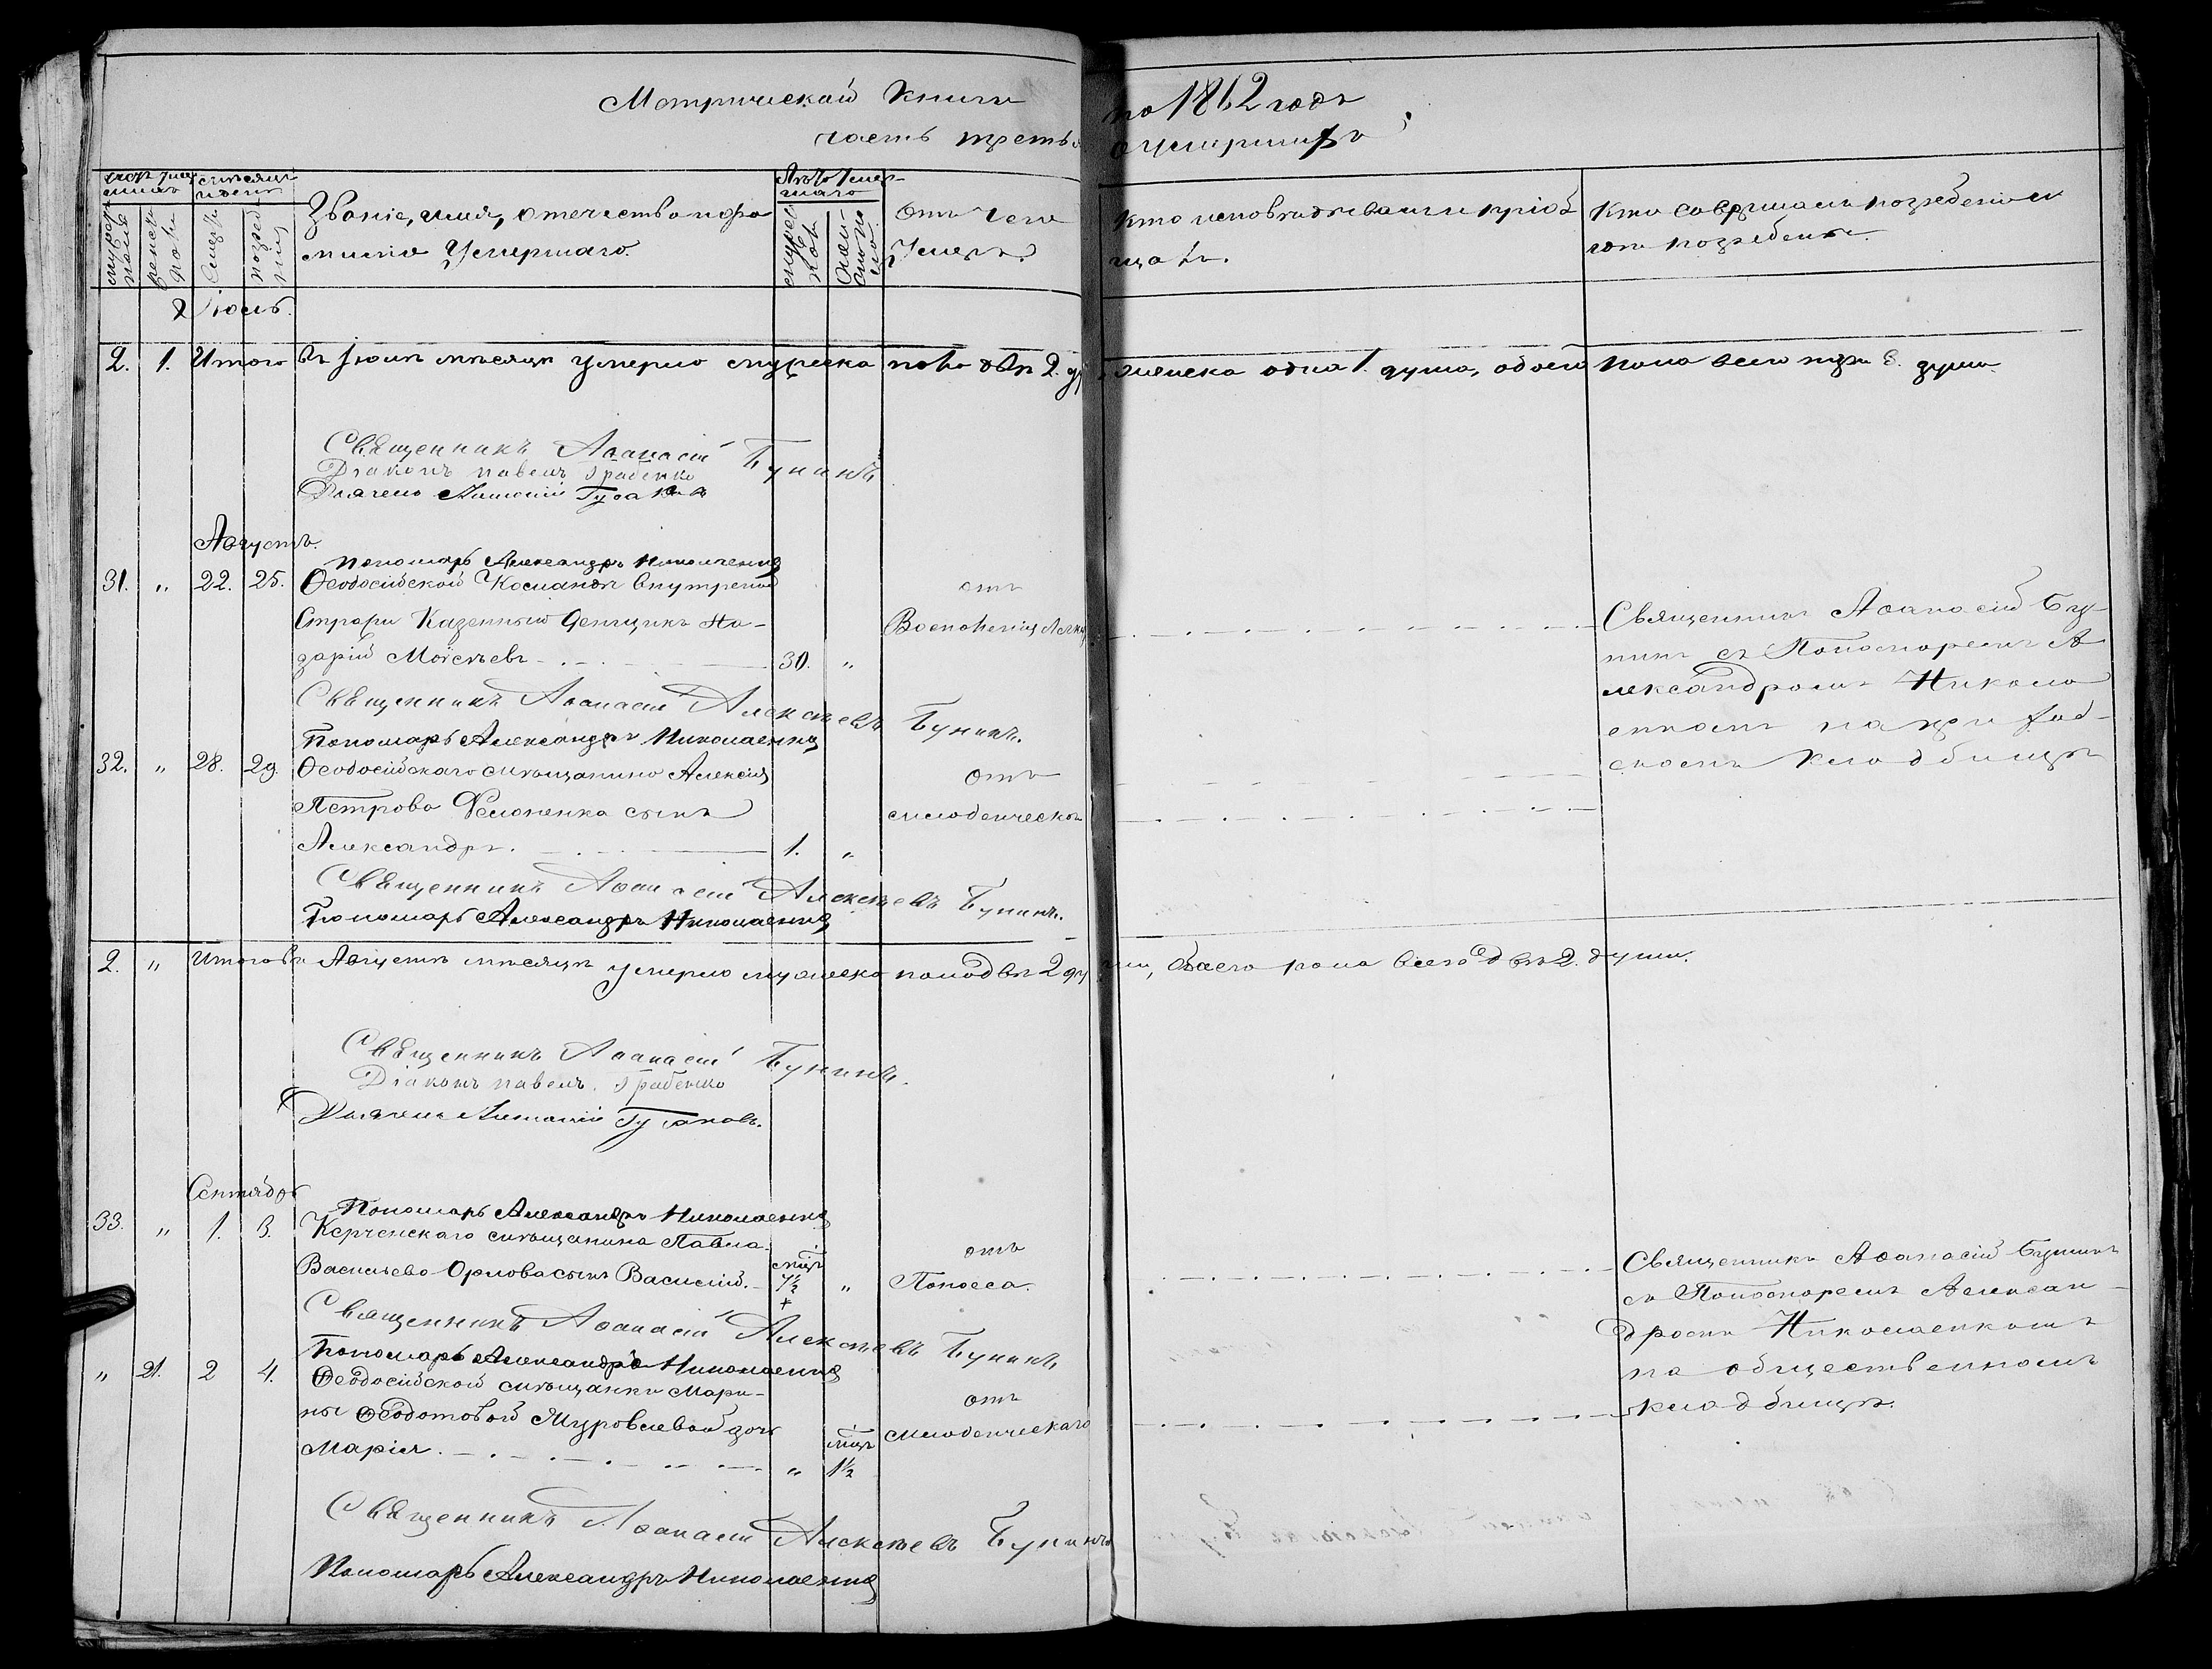 Метрической книги на 1862 годъ
часть третья о умершихъ
Счетъ умершихъ
Мѣсяцъ и день
Лѣта умершаго
мужеска пола
женска пола
смерти
погребенія
Званіе, имя, отечество и фамилія умершаго.
мужескаго
женскаго
Отъ чего умеръ.
Кто исповѣдывалъ и пріобщалъ.
Кто совершалъ погребеніе и гдѣ погребены.
Іюль.
2. 1. Итого въ Іюлѣ мѣсяцѣ умерло мужеска пола двѣ 2. души, женска одна 1. душа, обоего пола всего три 3. души.
Священникъ Аѳанасій Бунинъ
Діаконъ Павелъ Грабенко
Дьячекъ
Августъ.
Пономарь Александръ Николаенко
31. „ 22. 25. Ѳеодосійской Команды внутренной отъ
стражи Казенный денщикъ На- Воспаленія Священникъ Аѳанасій Бу-
зарій Моисѣевъ 30. „ нинъ съ Пономаремъ А-
Священникъ Аѳанасій Алексѣевъ Бунинъ. лександромъ Никола-
Пономарь Александръ Николаенко енкомъ
32. „ 28. 29. Ѳеодосійскаго мѣщанина Алексія отъ кладбищѣ
Петрова сынъ младенческой
Александръ. 1. „
Священникъ Аѳанасій Алексѣевъ Бунинъ.
Пономарь Александръ Николаенко
2. „ Итого въ Августѣ мѣсяцѣ умерло мужеска пола двѣ 2 души, обоего пола всего двѣ 2. души.
Священникъ Аѳанасій Бунинъ.
Діаконъ Павелъ Грабенко
Дьячекъ
Сентябрь
Пономарь Александръ Николаенко
33. „ 1. 3. Керченскаго мѣщанина Павла отъ Священникъ Аѳанасій Бунинъ
Васильева Орлова сынъ Василій. мѣц. 7½ „ Поноса. съ Пономаремъ Алексан-
Священникъ Аѳанасій Алексѣевъ Бунинъ дромъ Николаенкомъ
Пономарь Александръ Николаенко на общественномъ
„ 21. 2 4. Ѳеодосійской мѣщанки Мари- отъ кладбищѣ.
ны Ѳедотовой дочь младенческаго
Марія. „ мѣц. 1½
Священникъ Аѳанасій Алексѣевъ Бунинъ
Пономарь Александръ Николаенко